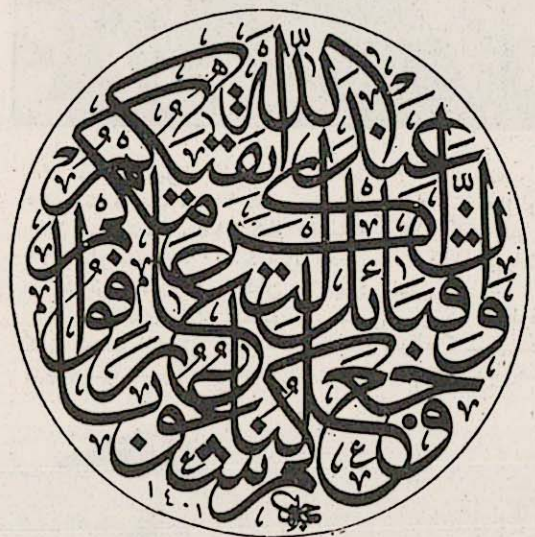 وَجَعَلْنَاكُمْ شُعُوبًا
وَقَبَائِلَ لِتَعَارَفُوا
إِنَّ أَكْرَمَكُمْ
عِنْدَ اللّٰهِ أَتْقٰيكُمْ
١٤٠١